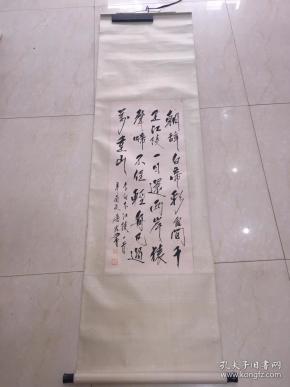 朝辞白帝彩云间千
里江陵一日还两岸猿
声啼不住轻舟已过
万重山
李白下江陵一首
孔夫子旧书网